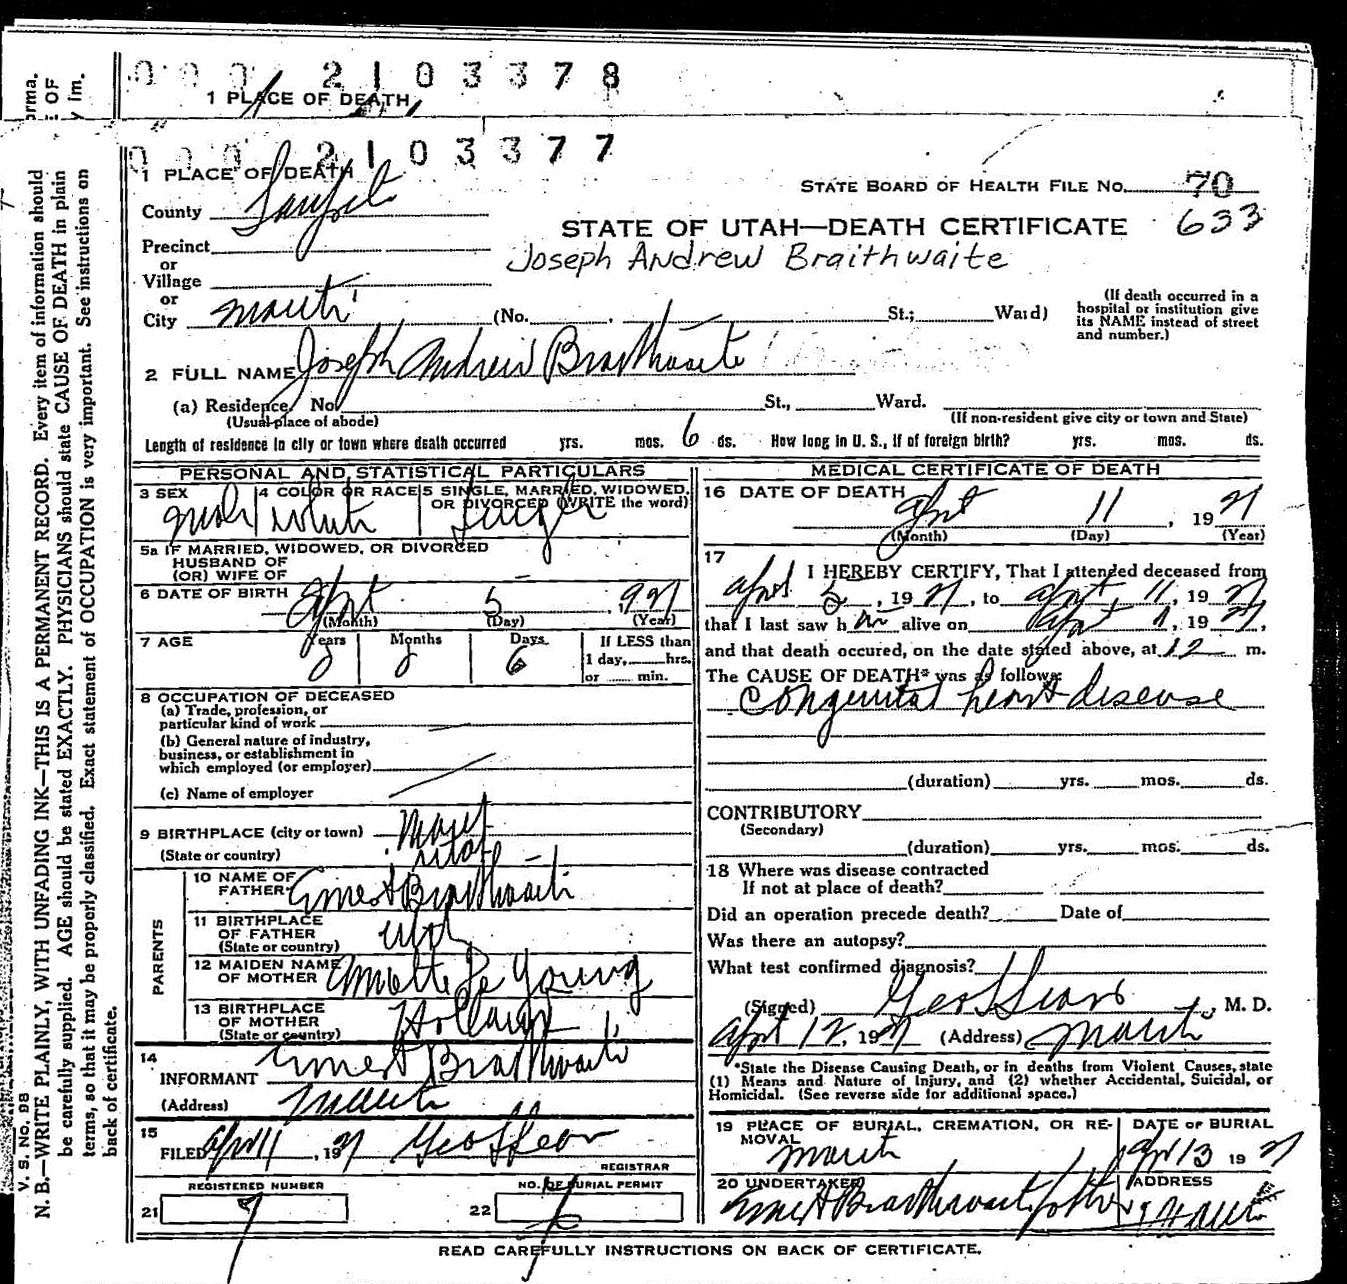 0 0 0 2 1 0 3 3 7 8
1 PLACE OF DEATH
orma.
E OF
y im.
0 0 0 2 1 0 3 3 7 7
1 PLACE OF DEATH
STATE BOARD OF HEALTH FILE NO. 70
633
County Sanpete
STATE OF UTAH—DEATH CERTIFICATE
Joseph Andrew Braithwaite
Precinct
or
Village
or
City Manti (No. , St.; Ward)
(If death occurred in a hospital or institution give its NAME instead of street and number.)
2 FULL NAME Joseph Andrew Braithwaite
(a) Residence, No. St., Ward.
(Usual place of abode) (If non-resident give city or town and State)
Length of residence in city or town where death occurred yrs. mos. 6 ds. How long in U. S., if of foreign birth? yrs. mos. ds.
PERSONAL AND STATISTICAL PARTICULARS
3 SEX 4 COLOR OR RACE 5 SINGLE, MARRIED, WIDOWED, OR DIVORCED (WRITE the word)
Male White Single
5a IF MARRIED, WIDOWED, OR DIVORCED
HUSBAND OF
(OR) WIFE OF
6 DATE OF BIRTH April 5 , 1927
(Month) (Day) (Year)
7 AGE Years Months Days If LESS than
6 1 day, hrs.
or min.
8 OCCUPATION OF DECEASED
(a) Trade, profession, or
particular kind of work
(b) General nature of industry,
business, or establishment in
which employed (or employer)
(c) Name of employer
9 BIRTHPLACE (city or town) Manti
(State or country) Utah
PARENTS
10 NAME OF FATHER Ernest Braithwaite
11 BIRTHPLACE OF FATHER (State or country) Utah
12 MAIDEN NAME OF MOTHER De Young
13 BIRTHPLACE OF MOTHER (State or country) Holland
14
INFORMANT Ernest Braithwaite
(Address) Manti
15
FILED April 11 , 1927 Geo L Sears
REGISTRAR
REGISTERED NUMBER NO. OF BURIAL PERMIT
21 7 22 7
MEDICAL CERTIFICATE OF DEATH
16 DATE OF DEATH
April 11 , 1927
(Month) (Day) (Year)
17
I HEREBY CERTIFY, That I attended deceased from
April 5 , 1927, to April 11, 1927
that I last saw him alive on April 11, 1927,
and that death occured, on the date stated above, at 12 m.
The CAUSE OF DEATH* wns as follows:
Congenital heart disease
(duration) yrs. mos. ds.
CONTRIBUTORY
(Secondary)
(duration) yrs. mos. ds.
18 Where was disease contracted
If not at place of death?
Did an operation precede death? Date of
Was there an autopsy?
What test confirmed diagnosis?
(Signed) Geo L Sears, M. D.
April 12, 1927 (Address) Manti
*State the Disease Causing Death, or in deaths from Violent Causes, state
(1) Means and Nature of Injury, and (2) whether Accidental, Suicidal, or
Homicidal. (See reverse side for additional space.)
19 PLACE OF BURIAL, CREMATION, OR REMOVAL DATE OF BURIAL
Manti Apr 13 1927
20 UNDERTAKER ADDRESS
Ernest Braithwaite father Manti
READ CAREFULLY INSTRUCTIONS ON BACK OF CERTIFICATE.
V. S. No. 98
N. B.—WRITE PLAINLY, WITH UNFADING INK—THIS IS A PERMANENT RECORD. Every item of information should
be carefully supplied. AGE should be stated EXACTLY. PHYSICIANS should state CAUSE OF DEATH in plain
terms, so that it may be properly classified. Exact statement of OCCUPATION is very important. See instructions on
back of certificate.